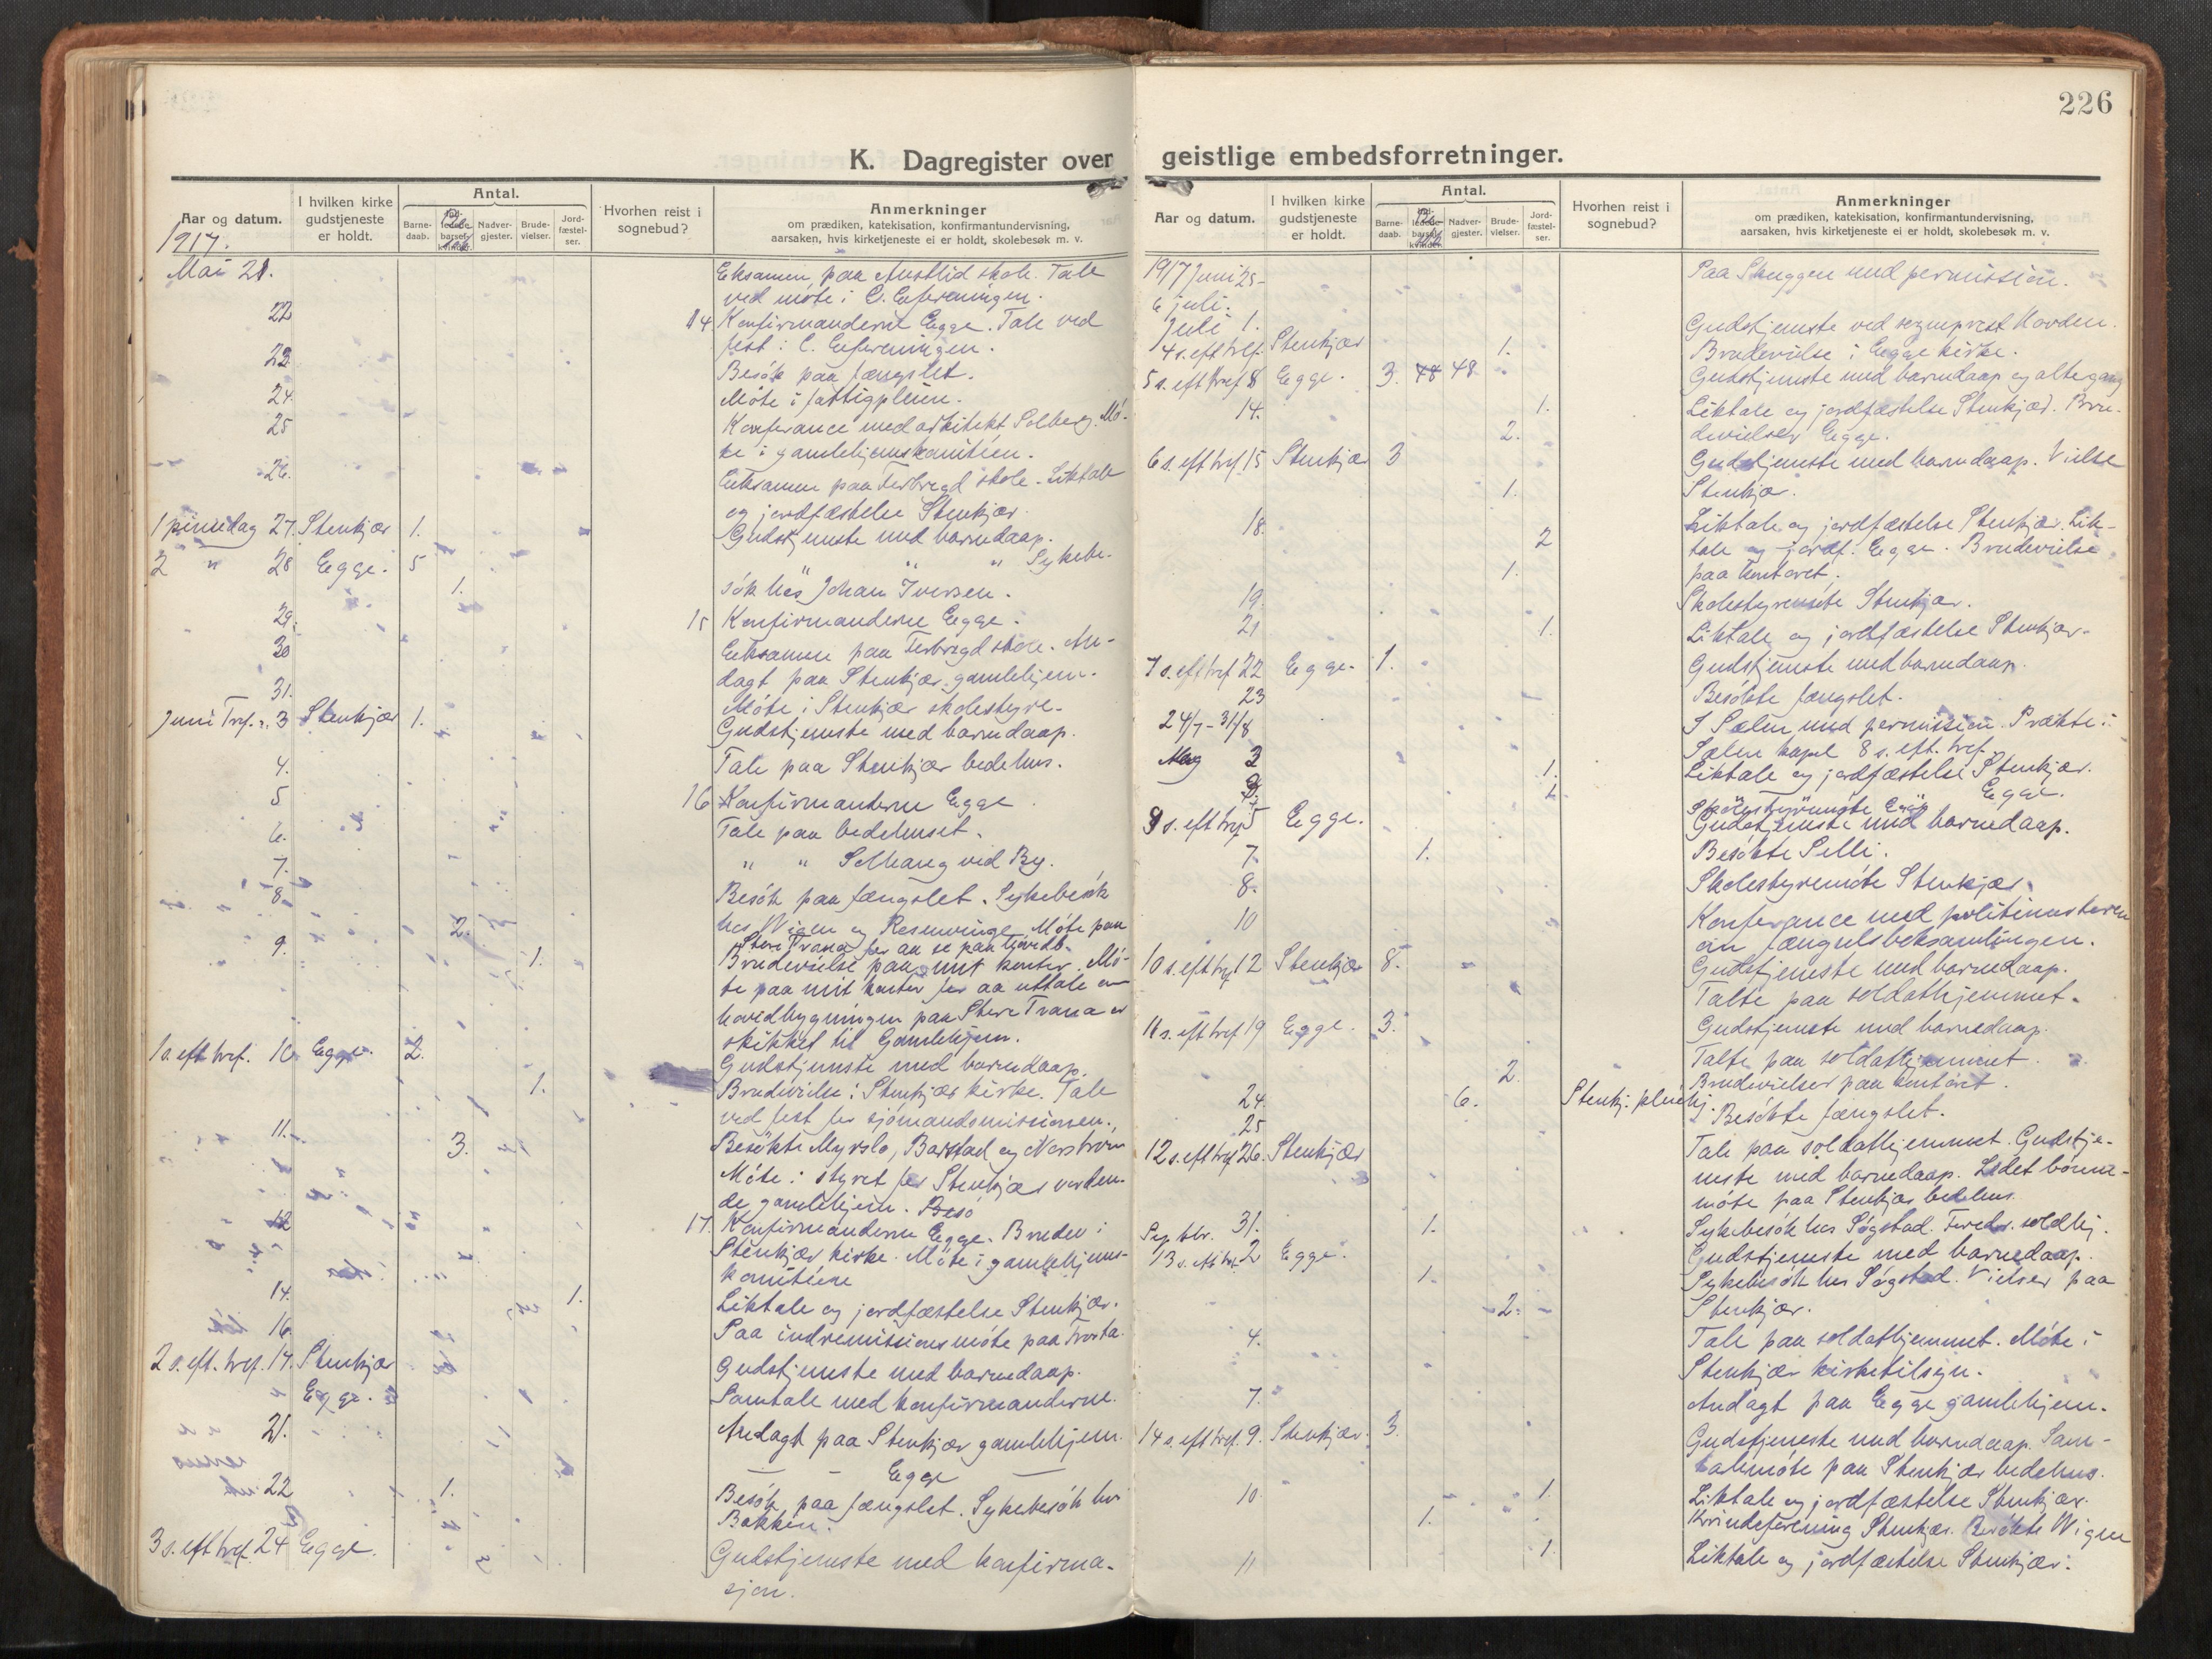 226
K. Dagregister over geistlige embedsforretninger.
Aar og datum.
I hvilken kirke gudstjeneste er holdt.
Antal.
Barne-daab.
Nadver-gjester.
Brude-vielser.
Jord-fæstel-ser.
Hvorhen reist i sognebud?
Anmerkninger
om prædiken, katekisation, konfirmantundervisning,
aarsaken, hvis kirketjeneste ei er holdt, skolebesøk m. v.
1917.
Mai 21. Eksamen paa skole. Tale
ved møte i
22 14 Konfirmanderne Egge. Tale ved
fest i
23 Besøk paa fængslet.
24. Møte i fattigpleien.
25 Konferance med arkitekt Solberg. Mø-
te i gamlehjemskomitéen.
26. Eksamen paa skole. Liktale
og jordfæstelse Stenkjær.
1 pinsedag 27. Stenkjær 1. Gudstjeneste med barnedaap.
2 " 28 Egge. 5 " " Sykebe-
1. søk hos Johan Iversen.
29. 15 Konfirmanderne Egge.
30 Eksamen paa skole. An-
dagt paa Stenkjær gamlehjem.
31. Møte i Stenkjær skolestyre.
Juni Tref. s. 3 Stenkjær 1. Gudstjeneste med barnedaap.
4. Tale paa Stenkjær bedehus.
5 16 Konfirmanderne Egge
6. Tale paa bedehuset.
7. " " Solhaug ved By.
8. Besøk paa fængslet. Sykebesøk
2. hos Wigen og Rosenvinge. Møte paa
Store Trana for aa se paa
9. 1. Brudevielse paa mit kontor. Mø-
te paa mit kontor for aa uttale om
hovedbygningen paa Store Trana er
skikket til Gamlehjem.
1 s. eft. tref. 10 Egge. 2. Gudstjeneste med barnedaap.
1. Brudevielse i Stenkjær kirke. Tale
ved fest for sjømandsmissionen.
11. 3. Besøkte Myrslo, Barstad og
Møte i styret for Stenkjær vorden-
de gamlehjem. Besø
12 17. Konfirmanderne Egge. Brudev i
Stenkjær kirke. Møte i gamlehjems-
komitéene
14. 1. Liktale og jordfæstelse Stenkjær.
16. Paa indremissionsmøte paa Frosta.
2 s. eft. tref. 17. Stenkjær Gudstjeneste med barnedaap.
Egge. Samtale med konfirmanderne.
21. Andagt paa Stenkjær gamlehjem.
— — Egge —
22 1. Besøk paa fængslet. Sykebesøk hos
Bakken.
3 s. eft tref. 24 Egge. Gudstjeneste med konfirma-
sjon.
Aar og datum.
I hvilken kirke gudstjeneste er holdt.
Antal.
Barne-daab.
Nadver-gjester.
Brude-vielser.
Jord-fæstel-ser.
Hvorhen reist i sognebud?
Anmerkninger
om prædiken, katekisation, konfirmantundervisning,
aarsaken, hvis kirketjeneste ei er holdt, skolebesøk m. v.
1917 Juni 25- Paa Skuggen med permission.
6 juli.
Juli 1. Gudstjeneste ved sogneprest
4 s. eft tref. Stenkjær 1. Brudevielse i Egge kirke.
5 s. eft tref 8 Egge. 3. 48 48 Gudstjeneste med barnedaap og altergang
14. 1. Liktale og jordfæstelse Stenkjær. Bru-
2. devielser Egge.
6 s. eft tref 15 Stenkjær 3 Gudstjeneste med barnedaap. Vielse
1. Stenkjær.
18. Liktale og jordfæstelse Stenkjær. Lik-
2 tale og jordf. Egge. Brudevielse
1. paa kontoret.
19. Skolestyremøte Stenkjær.
21 1. Liktale og jordfæstelse Stenkjær.
7 s. eft tref 22 Egge. 1. Gudstjeneste med barnedaap.
23 Besøkte fængslet.
24/7 - 31/8 I Sælen med permission. Prækte i
Sælen kapel 8 s. eft. tref.
Aug 2 1. Liktale og jordfæstelse Stenkjær.
3. 1 " " Egge.
Skolestyremøte Egge
9 s. eft tref 5 Egge. Gudstjeneste med barnedaap.
7. 1. Besøkte Selli.
8. Skolestyremøte Stenkjær.
10 Konferance med politimesteren
om fængselsboksamlingen.
10 s. eft tref 12 Stenkjær 8. Gudstjeneste med barnedaap.
Talte paa soldathjemmet.
11 s. eft tref 19 Egge. 3. Gudstjeneste med barnedaap.
Talte paa soldathjemmet.
2. Brudevielser paa kontoret.
24. 6. Stenkj. pleiehj. Besøkte fængslet.
25 Tale paa soldathjemmet. Gudstje-
12 s. eft tref 26. Stenkjær neste med barnedaap. Ledet barne-
møte paa Stenkjær bedehus.
31. 1. Sykebesøk hos Søgstad. Foredr. soldhj.
Septbr.
13 s. eft tref. 2 Egge. Gudstjeneste med barnedaap.
1. Sykebesøk hos Søgstad. Vielser paa
2. Stenkjær.
4. Tale paa soldathjemmet. Møte i
Stenkjær kirketilsyn.
7. Andagt paa Egge gamlehjem.
14 s. eft tref. 9. Stenkjær. 3. Gudstjeneste med barnedaap. Sam-
talemøte paa Stenkjær bedehus.
10. 1. Liktale og jordfæstelse Stenkjær.
1. Kvindeforening Stenkjær. Besøkte Wigen
11 1. Liktale og jordfæstelse Stenkjær.